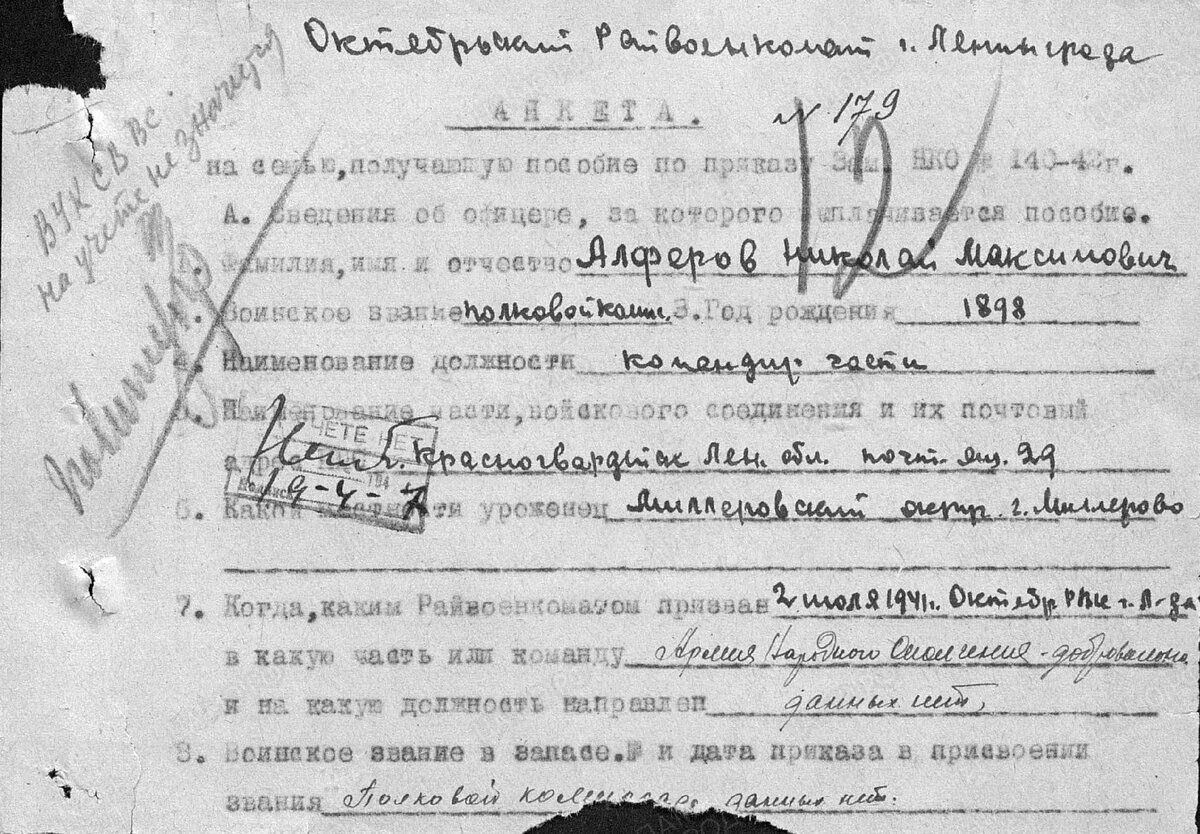 Октябрьский Райвоенкомат г. Ленинграда
АНКЕТА.
№ 179
12
на семью, получающую пособие по приказу Зам. НКО № 140-42г.
А. Сведения об офицере, за которого выплачивается пособие.
Фамилия, имя и отчество Алферов Николай Максимович
Воинское звание полковой комис. 3. Год рождения 1898
4. Наименование должности командир части
5. Наименование части, войскового соединения и их почтовый
г. Красногвардейск Лен. обл. почт. ящ. 29
6. Какой местности уроженец Миллеровский окр. г. Миллерово
7. Когда, каким Райвоенкоматом призван 2 июля 1941г. Октябр РВК г. Л-да
в какую часть или команду Армия Народного Ополчения - добровольно
и на какую должность направлен данных нет,
8. Воинское звание в запасе. № и дата приказа в присвоении
звания Полковой комиссар, данных нет.
ВУК СВ ВС
на учете не значится
УЧЕТЕ НЕТ
19-4-7